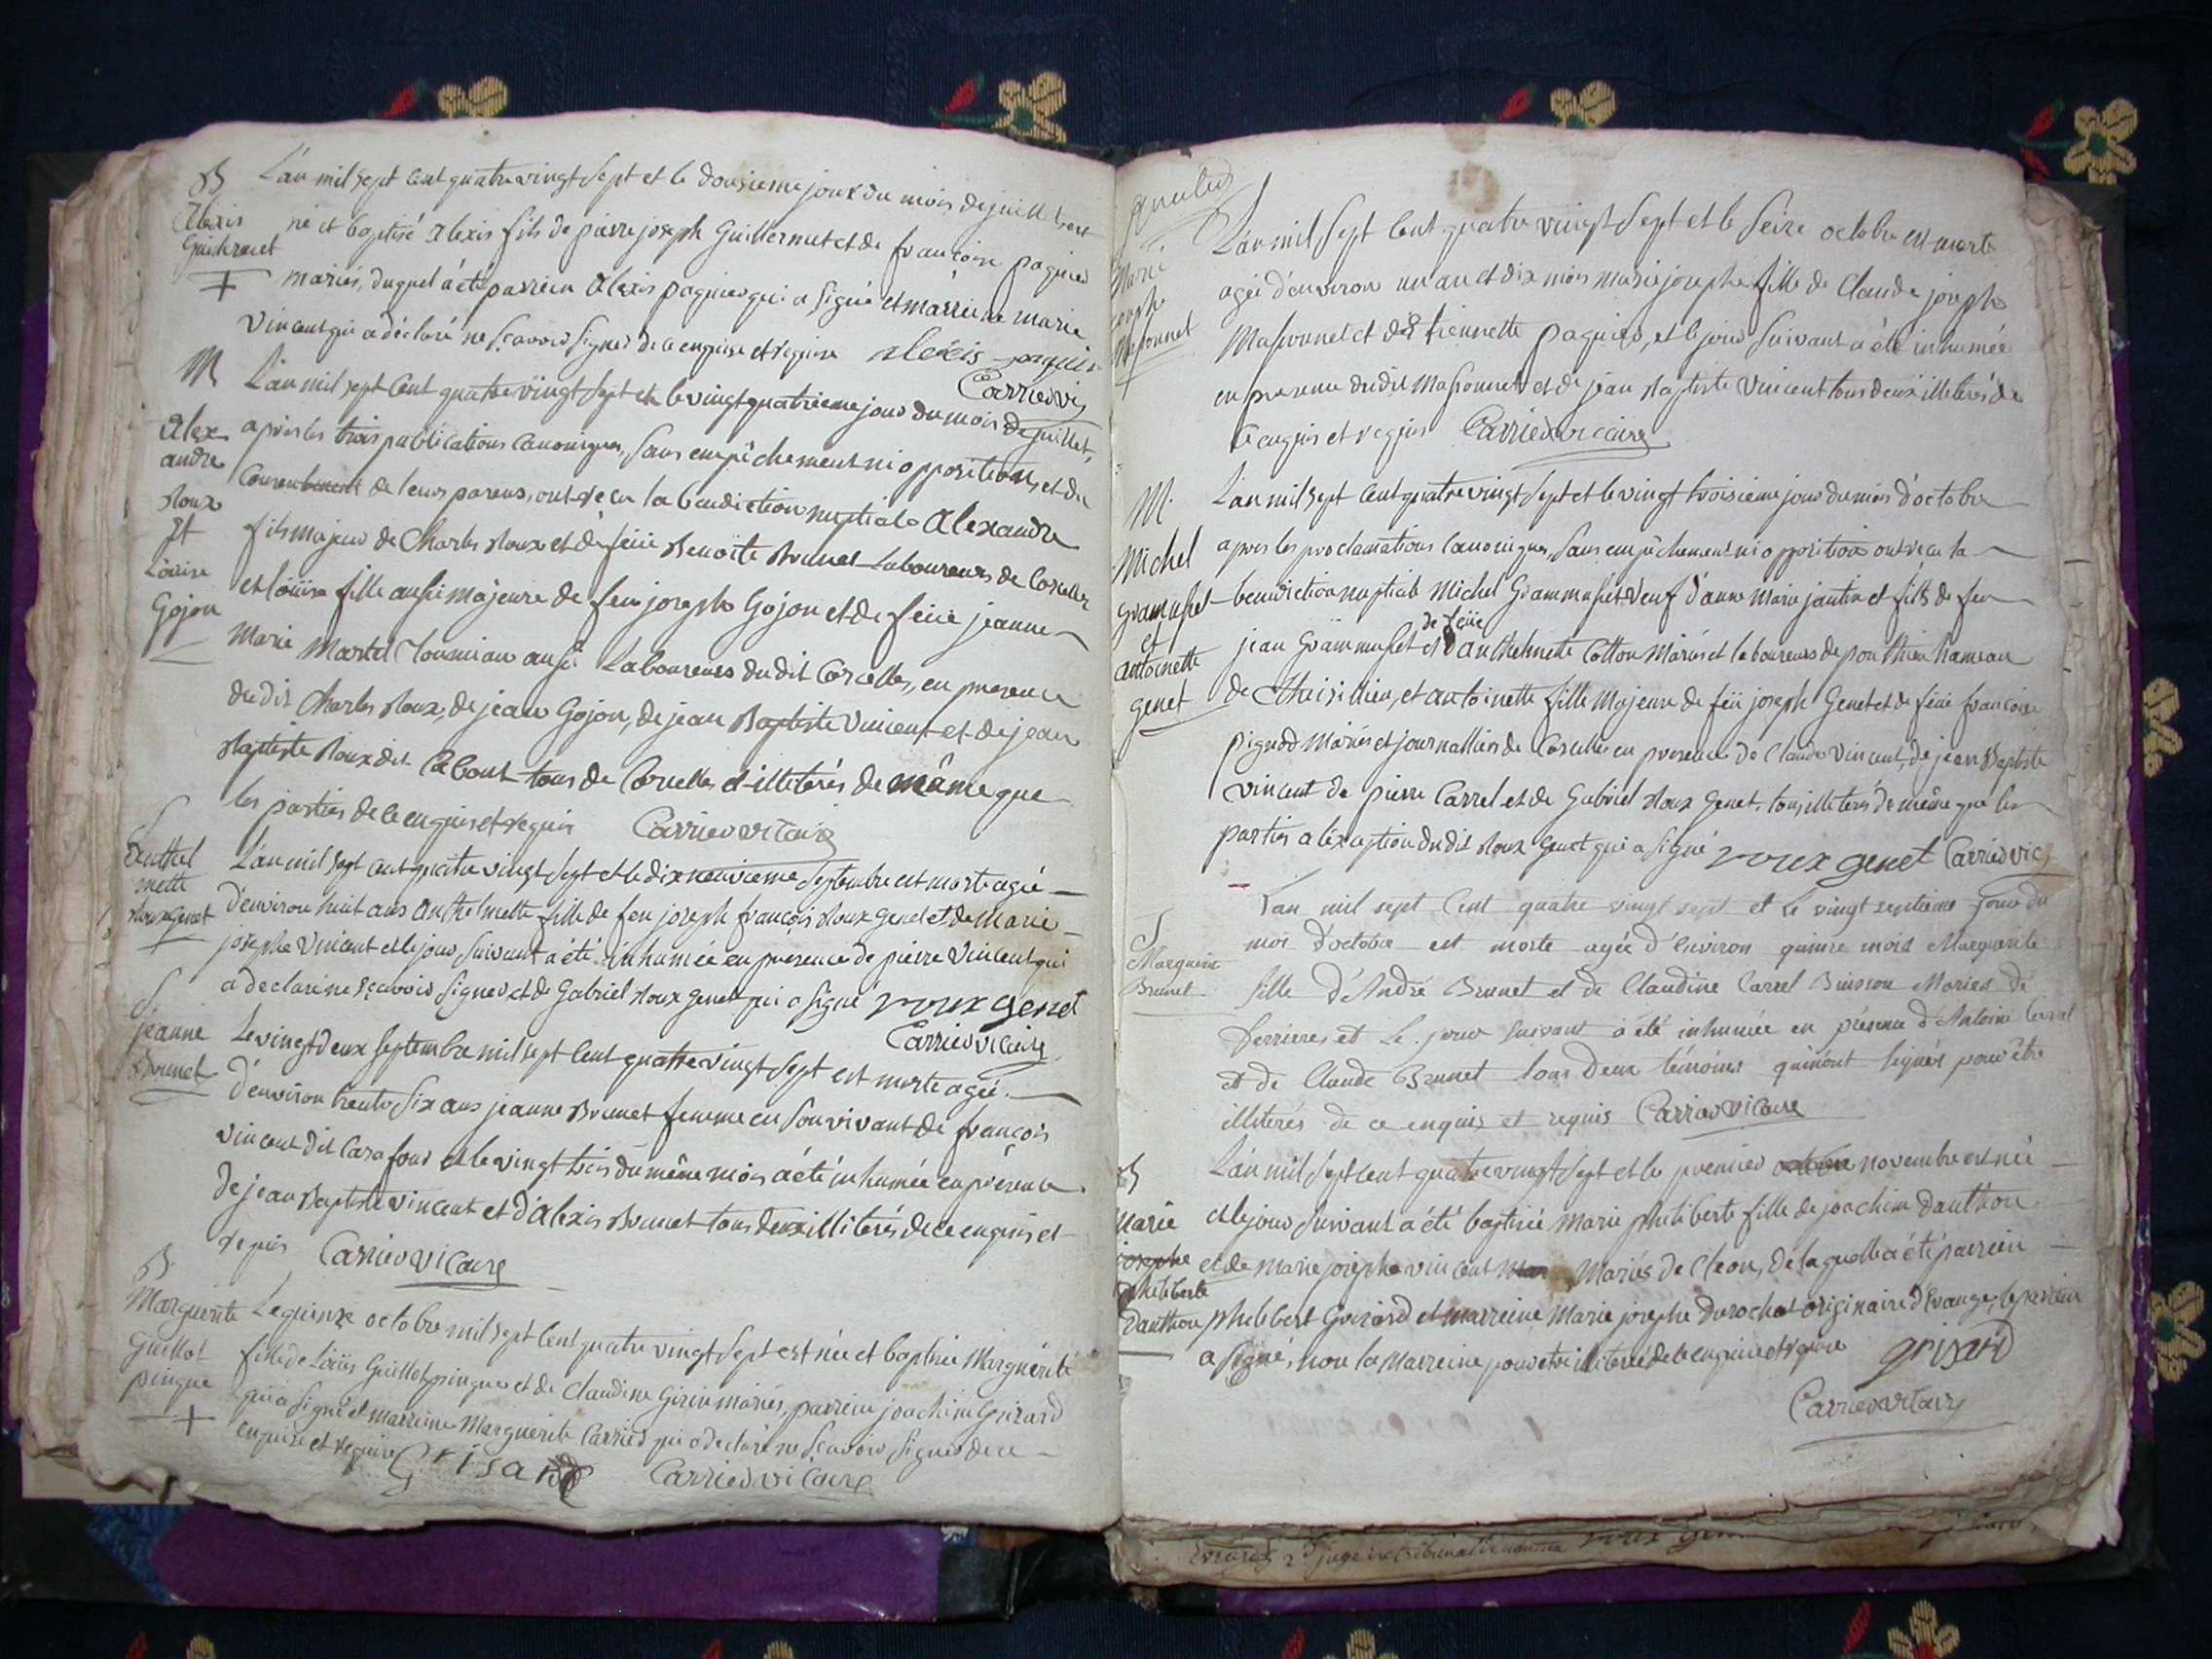 B
Alexis
Guillermet
L'an mil sept cent quatre vingt sept et le dousieme jour du mois de juillet est
né et baptisé alexis fils de pierre joseph Guillermet et de françoise paquier
mariés, duquel a été parrein Alexis paquier qui a signé et marreine marie
Vincent qui a déclaré ne sçavoir signer de ce enquise et requise alexis paquier
Carrier vic
M
Alex
andre
Roux
Et
Loüise
Gojon
L'an mil sept cent quatre vingt sept et le vingt quatrieme jour du mois de juillet,
après les trois publications canoniques, sans empêchement ni opposition, et du
consentement de leurs parens, ont reçu la benediction nuptiale Alexandre
fils majeur de Charles Roux et de feüe Benoîte Brunet Laboureurs de Corcelles
et loüise fille aussi majeure de feu joseph Gojon et de feüe jeanne
Marie Martel aussi Laboureurs du dit Corcelles, en presence
du dit Charles Roux, de jean Gojon, de jean Baptiste Vincent et de jean
Baptiste Roux dit tous de Corcelles et illiterés de même que
les parties de ce enquis et requis Carrier vicaire
S
Anthel
mette
Roux Genet
L'an mil sept cent quatre vingt sept et le dix neuvieme septembre est morte agée
d'environ huit ans Anthelmette fille de feu joseph françois Roux genet et de Marie
josephe Vincent et le jour suivant a été inhumée en presence de pierre Vincent qui
a declaré ne sçavoir signer et de Gabriel Roux genet qui a signé roux genet
Carrier vicaire
S
jeanne
Brunet
Le vingt deux septembre mil sept cent quatre vingt sept est morte agée
d'environ trente six ans jeanne Brunet femme en son vivant de françois
Vincent dit Carafour et le vingt trois du même mois a été inhumée en présence
de jean Baptiste vincent et d'alexis Brunet tous deux illiterés de ce enquis et
requis Carrier vicaire
B
Marguerite
Guillot
pingue
Le quinze octobre mil sept cent quatre vingt sept est née et baptisée Marguérite
fille de Loüis Guillot pingue et de Claudine Girin mariés, parrein joachim Grisard
qui a signé et marreine Marguerite Carrier qui a declaré ne sçavoir signer de ce
enquise et requise Grisard Carrier vicaire
Marie
josephe
Massonnet
L'an mil sept cent quatre vingt sept et le seize octobre est morte
agée d'environ un an et dix mois marie josephe fille de Claude joseph
Massonnet et d'Etiennette paquier, et le jour suivant a été inhumée
en presence du dit Massonnet et de jean Baptiste Vincent tous deux illiterés de
ce enquis et requis Carrier vicaire
M.
Michel
Grammusset
et
antoinette
genet
L'an mil sept cent quatre vingt sept et le vingt troisieme jour du mois d'octobre
apres les proclamations canoniques, sans empêchement ni opposition ont reçu la
benediction nuptiale Michel Grammusset veuf d'anne Marie jantin et fils de feu
jean Grammusset et de feüe anthelmette Cotton Mariés et laboureurs de ponthieu hameau
de Chaisirieu, et antoinette fille Majeure de feü joseph Genet et de feüe françoise
pignod Mariés et journalliers de Corcelles en presence de Claude Vincent, de jean Baptiste
vincent de pierre Carrel et de Gabriel Roux Genet, tous illiterés de même que les
parties a l'éxception du dit Roux Genet qui a signé roux genet Carrier vic
S
Marguerite
Brunet
L'an mil sept cent quatre vingt sept et le vingt septieme jour du
mois d'octobre est morte agée d'environ quinze mois Marguerite
fille d'André Brunet et de Claudine Carrel Buisson Mariés de
ferrieres, et le jour suivant a été inhumée en présence d'Antoine Carrel
et de Claude Brunet tous deux témoins qui n'ont signés pour être
illiterés de ce enquis et requis Carrier vicaire
B
Marie
josephe
philiberte
Danthon
L'an mil sept cent quatre vingt sept et le premier octobre novembre est née
et le jour suivant a été baptisée Marie philiberte fille de joachim Danthon
et de marie josephe vincent mar Mariés de Cleon, de laquelle a été parrein
philibert Grisard et marreine Marie josephe Durochat originaire d'Evange, le parrein
a signé, non la Marreine pour être illiterée de ce enquise et requise grisard
Carrier vicaire